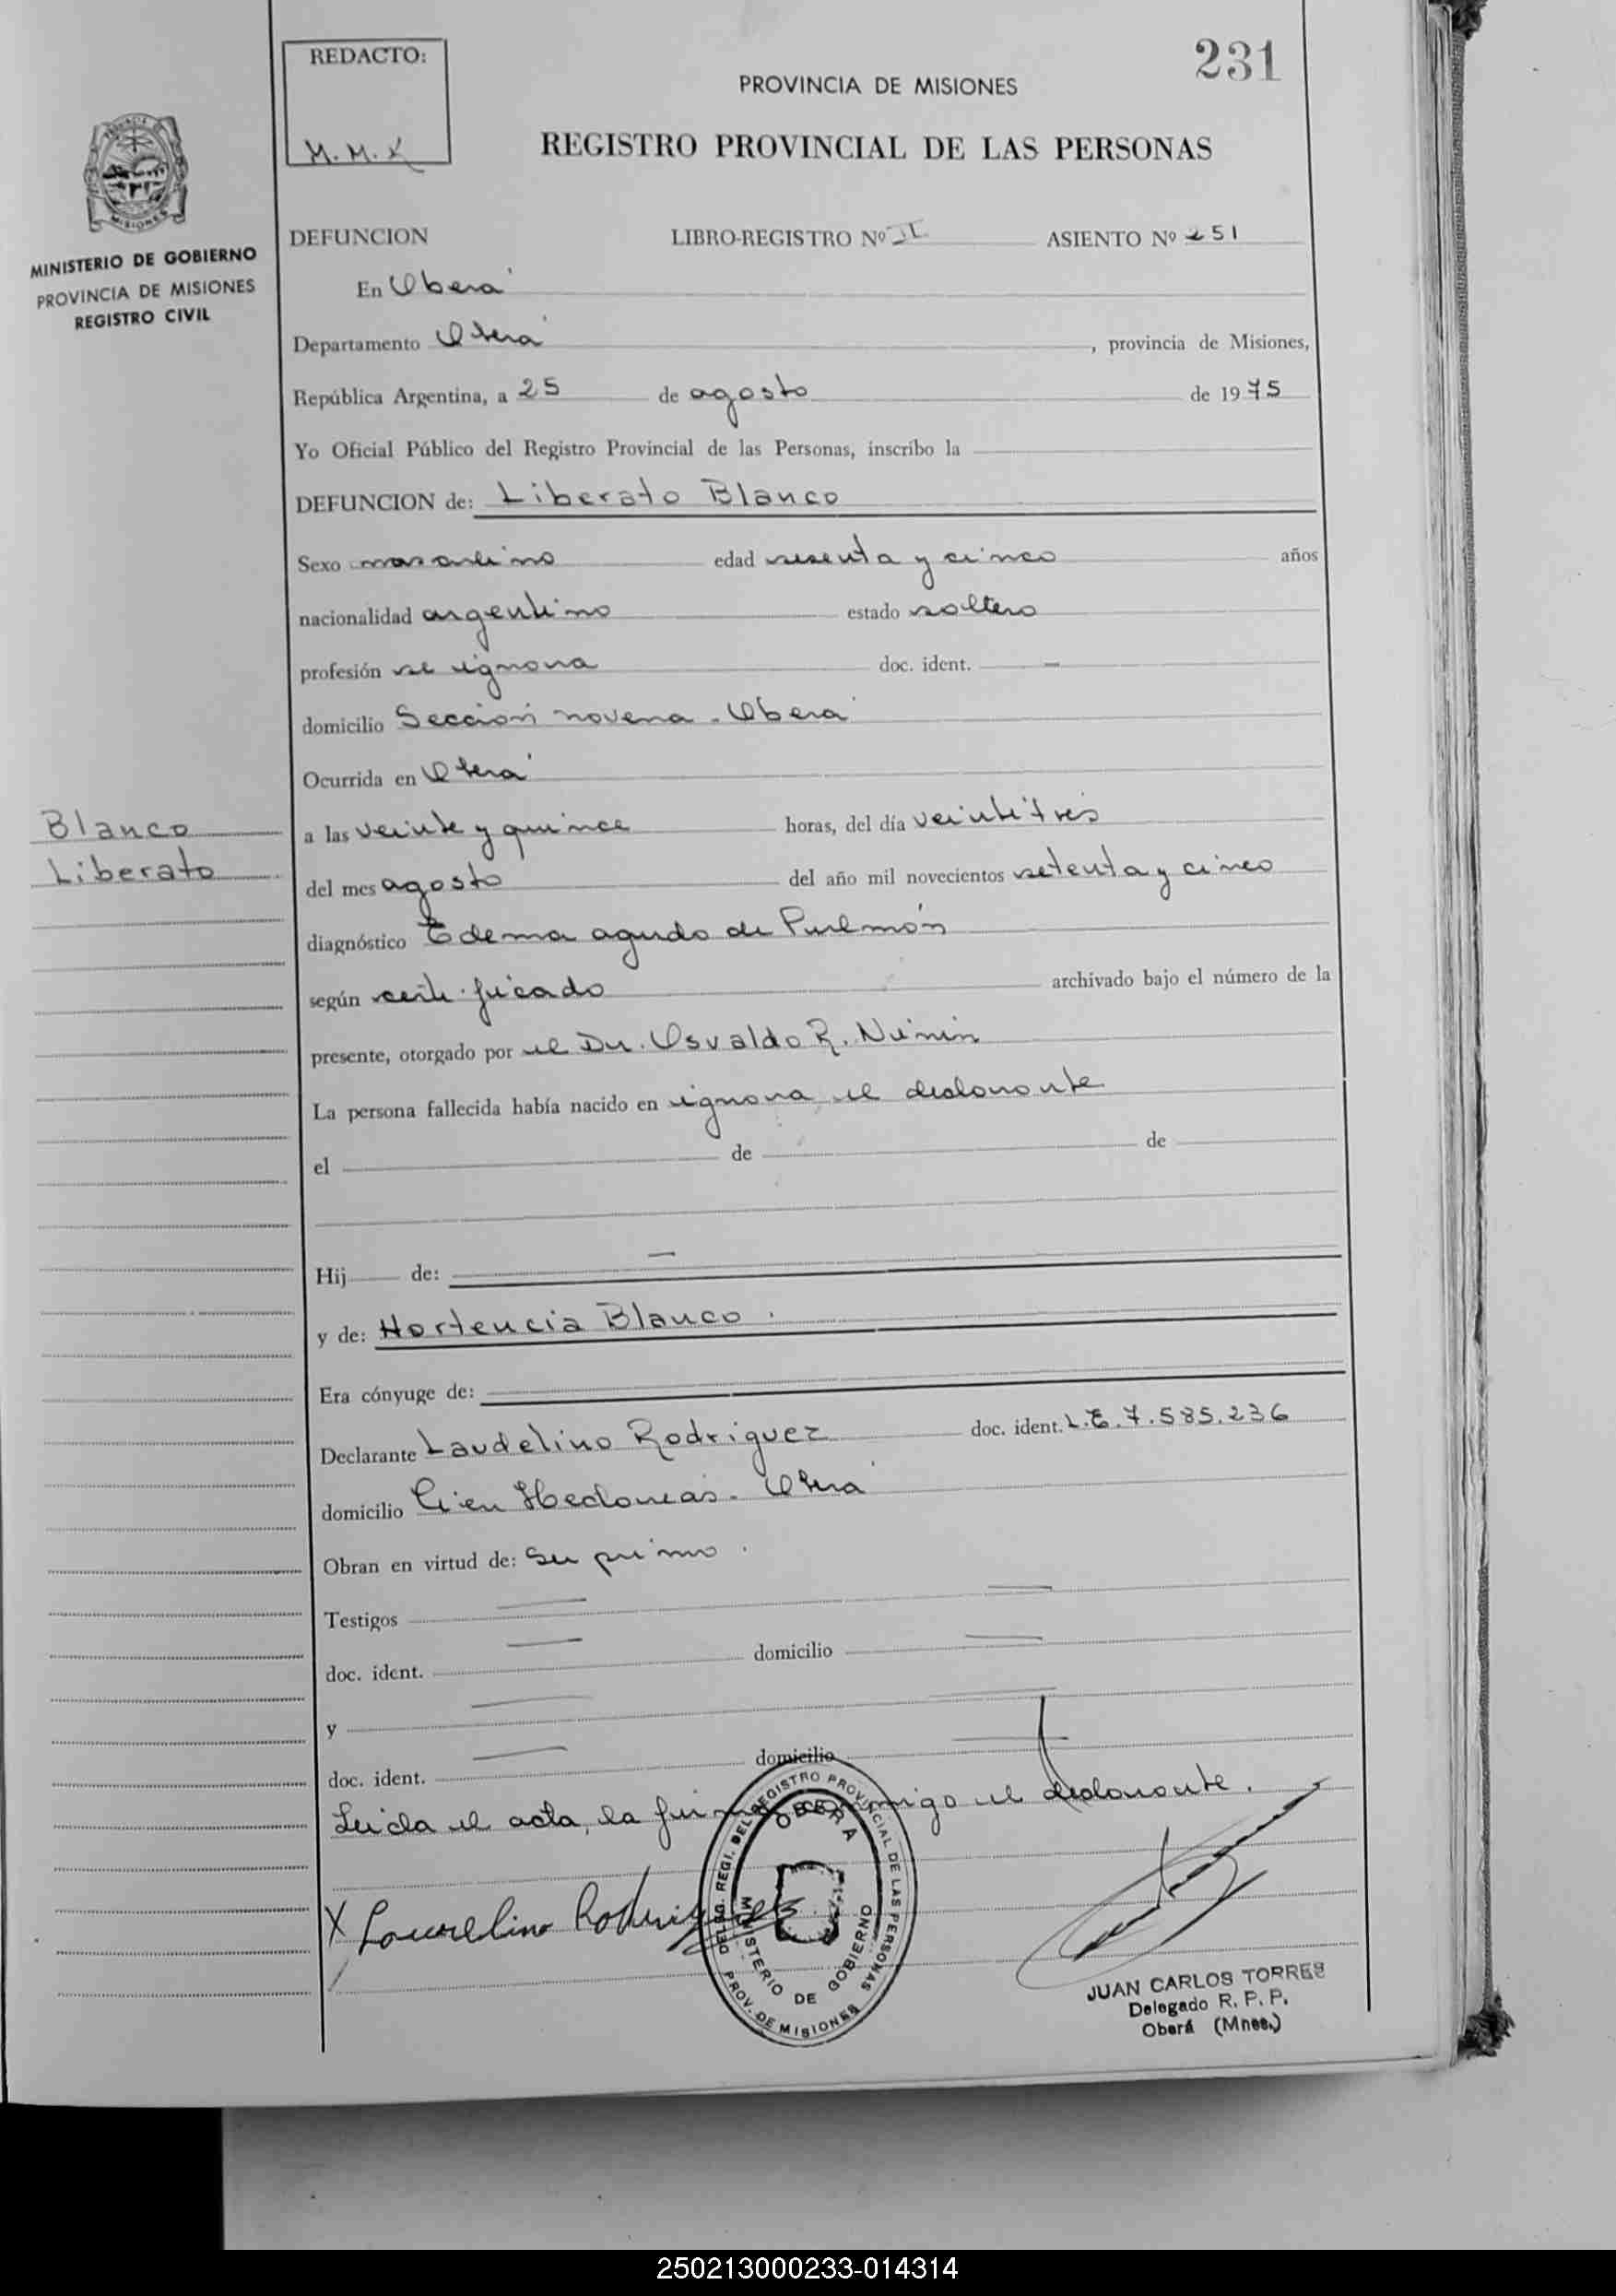 REDACTO:
M. M. K
231
PROVINCIA DE MISIONES
REGISTRO PROVINCIAL DE LAS PERSONAS
MISIONES
MINISTERIO DE GOBIERNO
PROVINCIA DE MISIONES
REGISTRO CIVIL
DEFUNCION LIBRO-REGISTRO Nº II ASIENTO Nº 251
En Oberá
Departamento Oberá, provincia de Misiones,
República Argentina, a 25 de agosto de 1975
Yo Oficial Público del Registro Provincial de las Personas, inscribo la
DEFUNCION de: Liberato Blanco
Sexo masculino edad sesenta y cinco años
nacionalidad argentino estado soltero
profesión se ignora doc. ident. —
domicilio Sección novena - Oberá
Ocurrida en Oberá
Blanco
Liberato
a las veinte y quince horas, del día veintitrés
del mes agosto del año mil novecientos setenta y cinco
diagnóstico Edema agudo de Pulmón
según certificado archivado bajo el número de la
presente, otorgado por el Dr. Osvaldo R.
La persona fallecida había nacido en ignora el declarante
el de de
Hij de: —
y de: Hortencia Blanco.
Era cónyuge de:
Declarante Laudelino Rodriguez doc. ident. L.E. 7.585.236
domicilio Cien Hectareas - Oberá
Obran en virtud de: Su primo.
Testigos
doc. ident. domicilio
y
doc. ident. domicilio
Leida el acta, la firma conmigo el declarante.
X Laudelino Rodriguez
DELEG. REGI. DEL REGISTRO PROVINCIAL DE LAS PERSONAS
OBERA
MINISTERIO DE GOBIERNO
PROV. DE MISIONES
JUAN CARLOS TORRES
Delegado R. P. P.
Oberá (Mnes.)
250213000233-014314